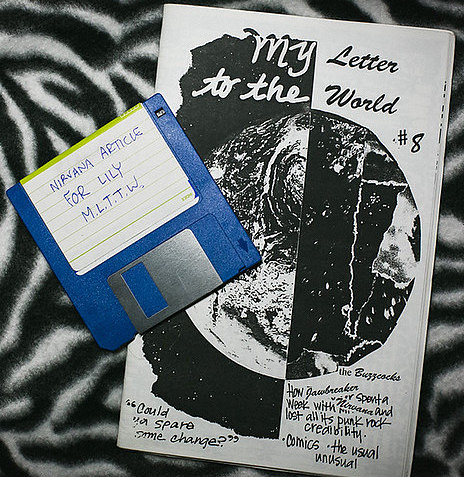 NIRVANA ARTICLE
FOR LILY
M.L.T.T.W.
My Letter
to the World
#8
the Buzzcocks
How Jawbreaker spent a
week with Nirvana and
lost all its punk rock
credibility.
• Comics • the usual
unusual
"Could
ya spare
some change?"